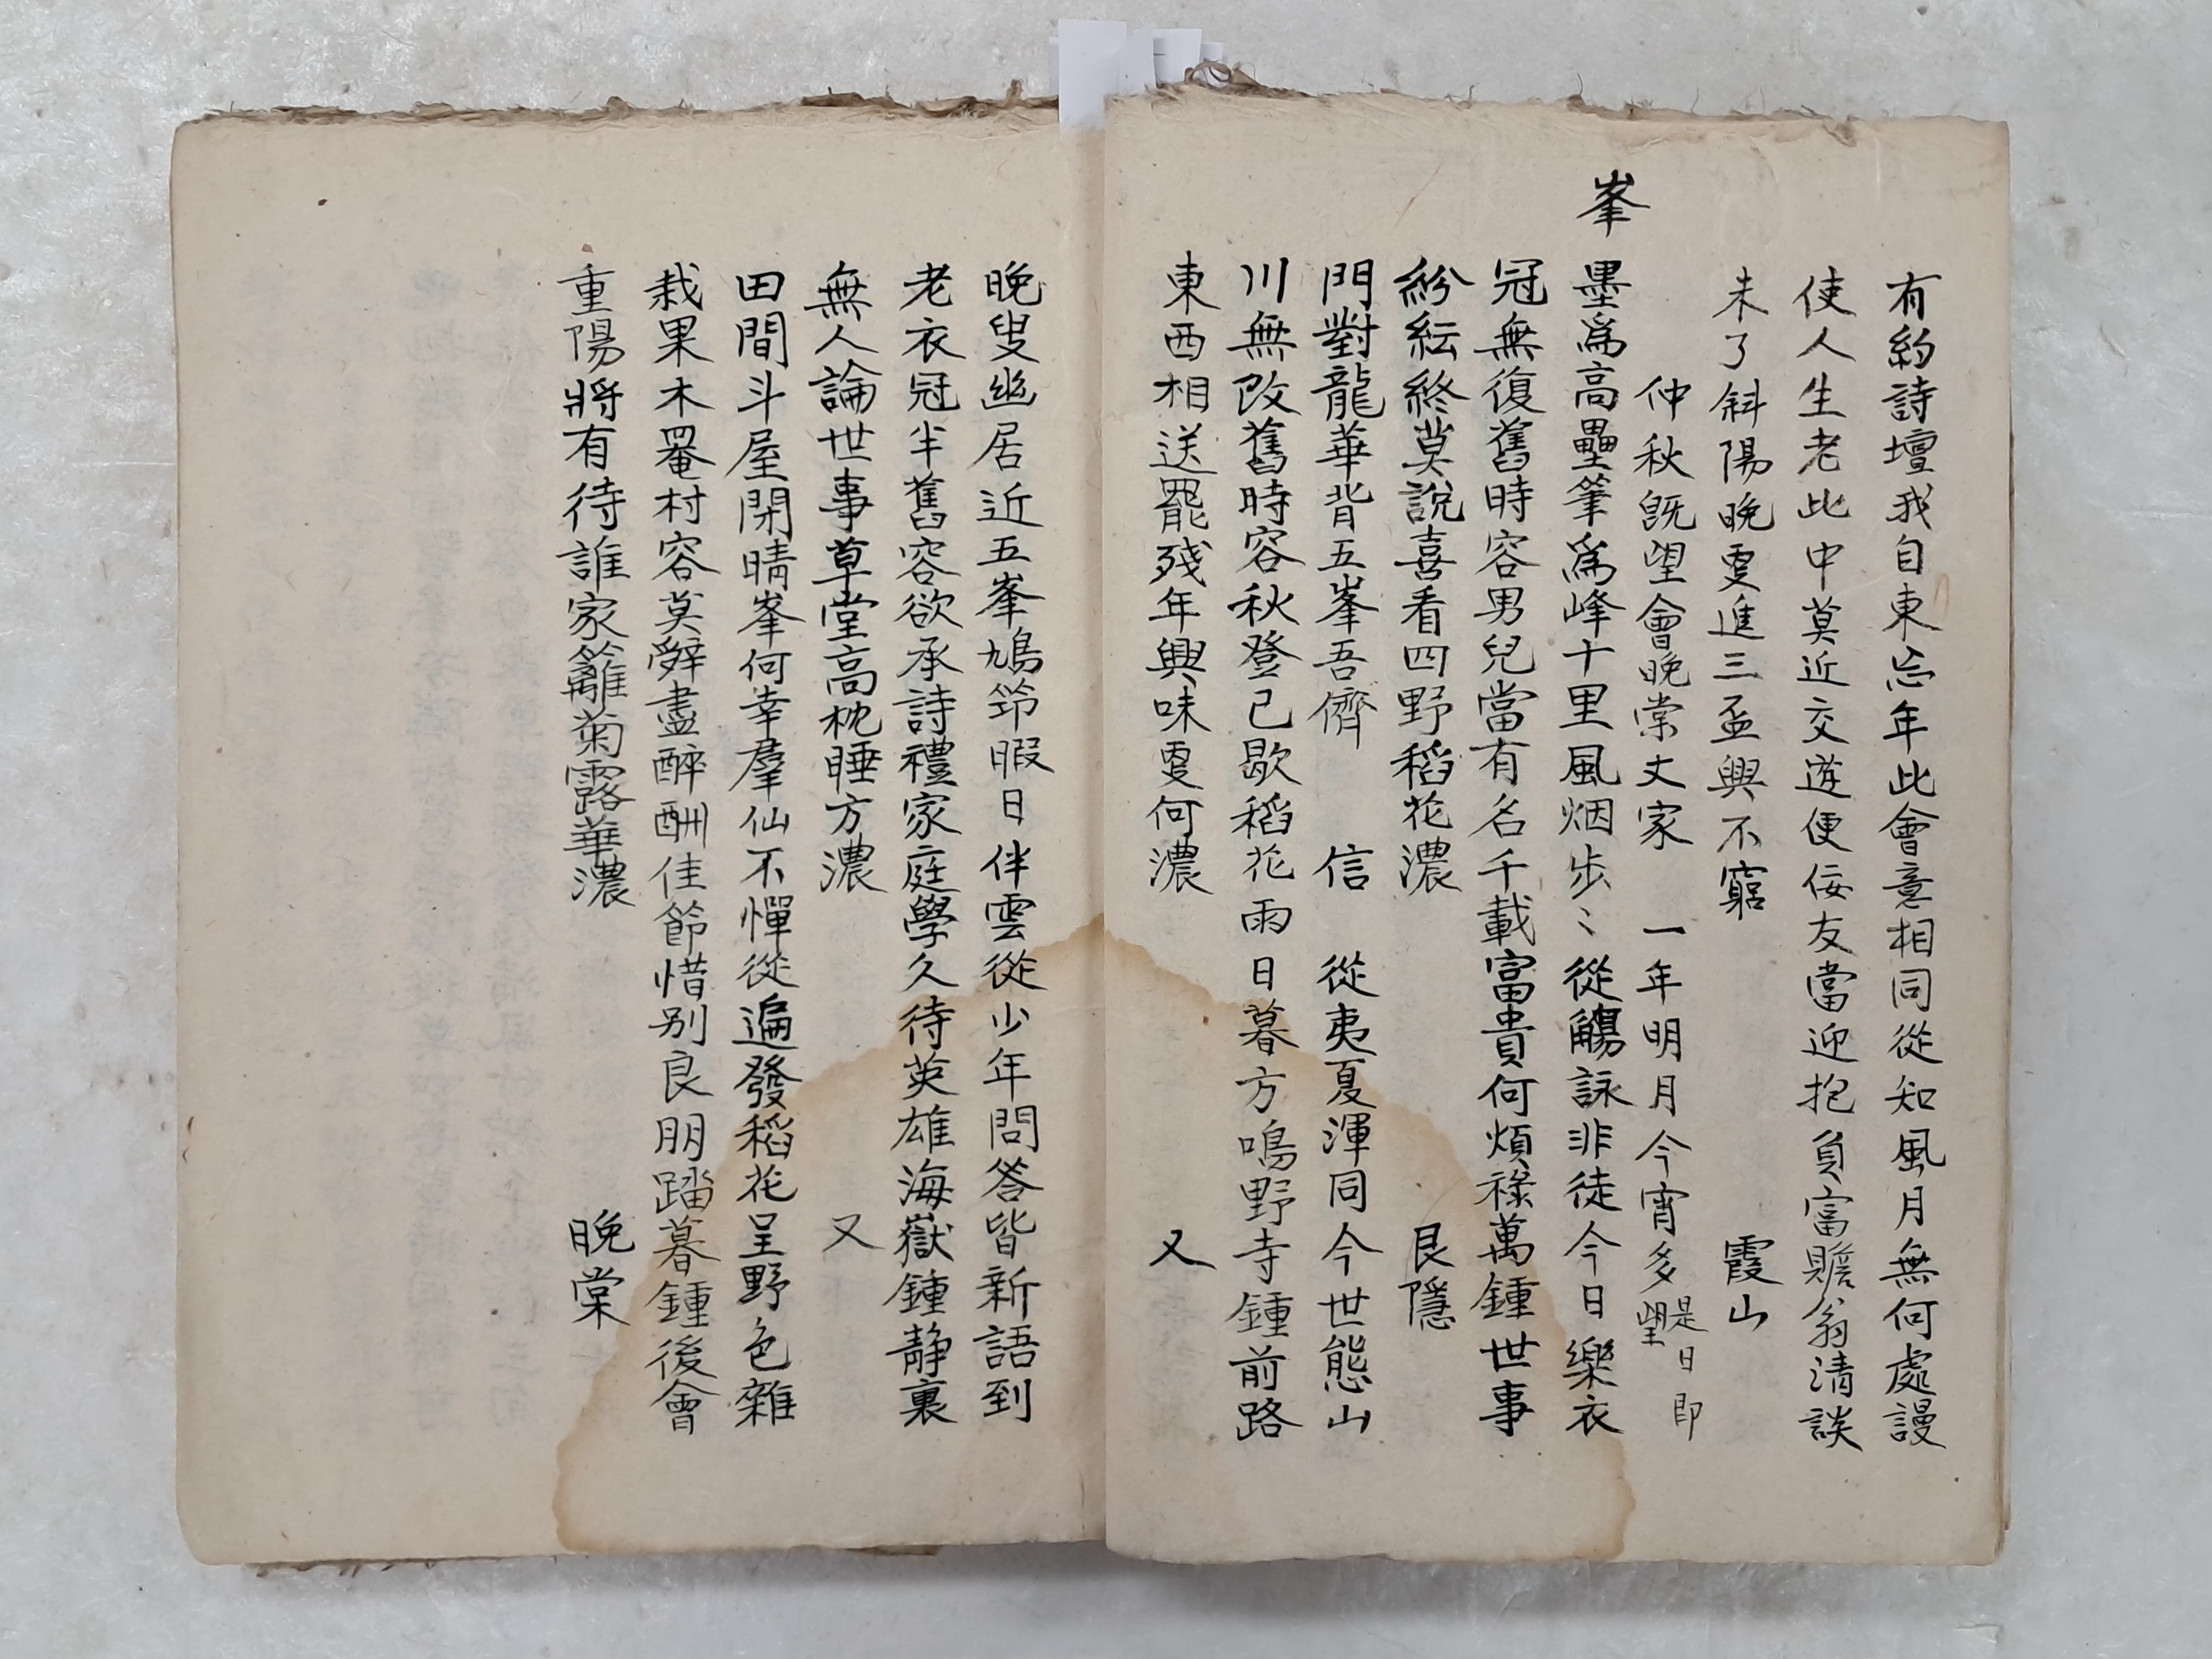 有約詩壇我自東忘年此會意相同從知風月無何處謾
使人生老此中莫近交遊便佞友當迎抱負富贍翁清談
未了斜陽晚更進三盃興不窮 霞山
仲秋旣望會晚棠丈家 一年明月今宵多 是日即望
峯
墨爲高壘筆爲峰十里風烟步〻從觴詠非徒今日樂衣
冠無復舊時容男兒當有名千載富貴何煩祿萬鍾世事
紛紜終莫說喜看四野稻花濃 艮隱
門對龍華背五峯吾儕 信 從夷夏渾同今世態山
川無改舊時容秋登已歇稻花雨日暮方鳴野寺鍾前路
東西相送罷殘年興味更何濃 又
晚叟幽居近五峯鳩笻暇日伴雲從少年問答皆新語到
老衣冠半舊容欲承詩禮家庭學久待英雄海嶽鍾静裏
無人論世事草堂高枕睡方濃 又
田間斗屋閉晴峯何幸羣仙不憚從遍發稻花呈野色雜
栽果木罨村容莫辭盡醉酬佳節惜别良朋踏暮鍾後會
重陽將有待誰家籬菊露華濃 晚棠